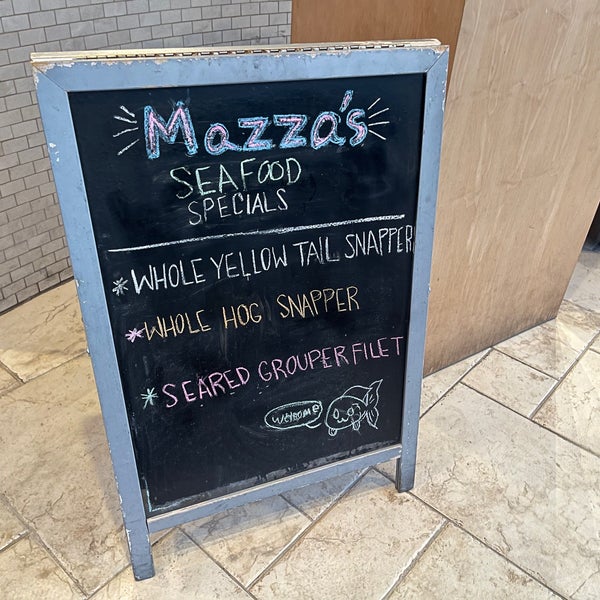 Mazza's
SEAFOOD
SPECIALS
*WHOLE YELLOW TAIL SNAPPER
*WHOLE HOG SNAPPER
*SEARED GROUPER FILET